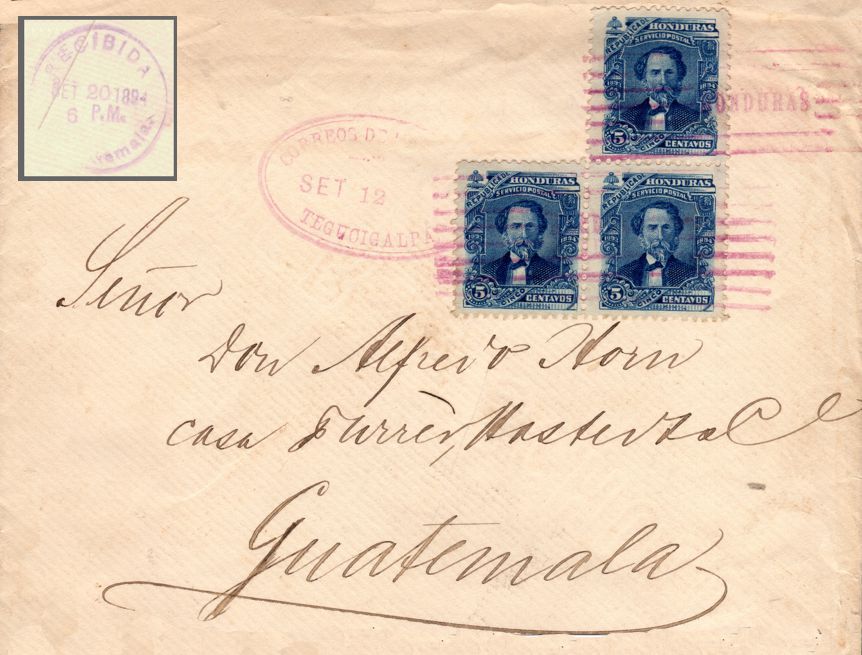 RECIBIDA
SET 20 1894
6 P.M.
HONDURAS
REPUBLICA HONDURAS
SERVICIO POSTAL
5 CINCO CENTAVOS
CORREOS DE
SET 12
TEGUCIGALPA
REPUBLICA HONDURAS
SERVICIO POSTAL
5 CINCO CENTAVOS
REPUBLICA HONDURAS
SERVICIO POSTAL
5 CINCO CENTAVOS
Señor
Don Alfredo Horn
casa Furrer, Hastedt & Cº
Guatemala